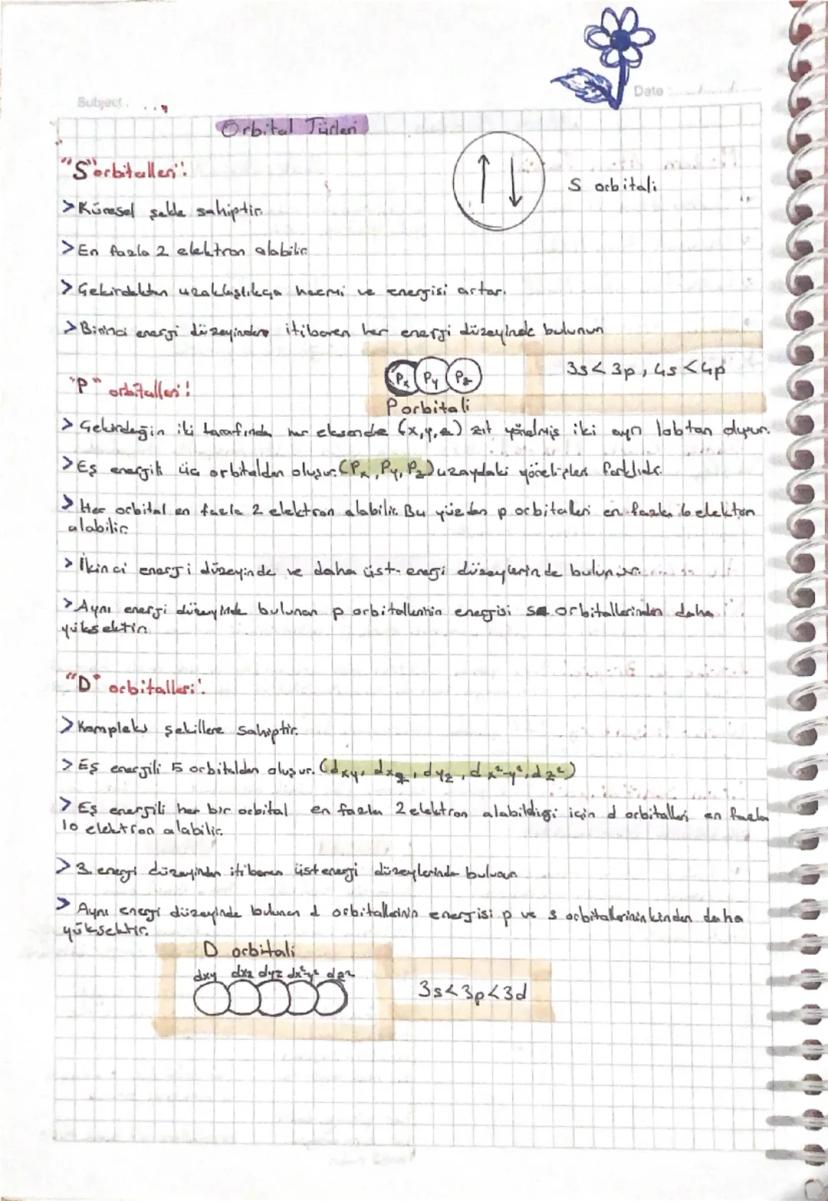 Subject:
Date:
Orbital Türleri
"S" orbitalleri:
S orbitali
> Küresel şekle sahiptir.
> En fazla 2 elektron alabilir.
> Çekirdekten uzaklaşıldıkça hacmi ve energisi artar.
> Birinci energi düzeyinden itibaren her energi düzeyinde bulunur
Px Py Pz
3s<3p, 4s<4p
"P" orbitalleri:
P orbitali
> Çekirdeğin iki tarafında her eksende (x,y,z) zıt yönelmiş iki ayrı lobtan oluşur.
> Eş energili üç orbitalden oluşur. (Px, Py, Pz) uzaydaki yönelişleri farklıdır.
> Her orbital en fazla 2 elektron alabilir. Bu yüzden p orbitalleri en fazla 6 elektron
alabilir.
> İkinci energi düzeyinde ve daha üst energi düzeylerinde bulunur.
> Aynı energi düzeyinde bulunan p orbitallerinin energisi s orbitallerinden daha
yüksektir.
"D" orbitalleri:
> Kompleks şekillere sahiptir.
> Eş energili 5 orbitalden oluşur. (dxy, dxz, dyz, dx²-y², dz²)
> Eş energili her bir orbital en fazla 2 elektron alabildiği için d orbitalleri en fazla
10 elektron alabilir.
> 3. energi düzeyinden itibaren üst energi düzeylerinde bulunur
> Aynı energi düzeyinde bulunan d orbitallerinin energisi p ve s orbitallerininkinden daha
yüksektir.
D orbitali
dxy dxz dyz dx²-y² dz²
3s<3p<3d